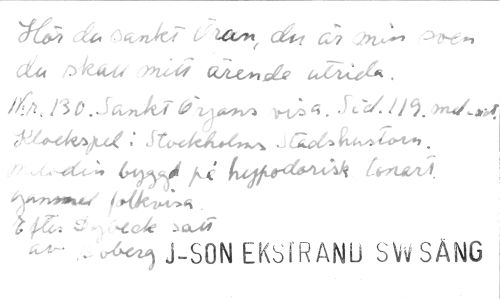 Hör du sankt Öran, du är min sven
du skall mitt ärende utrida.
Nr. 130. Sankt Örjans visa. Sid. 119. mel-
Klockspel i Stockholms Stadshustorn.
Melodin byggd på hypodorisk tonart.
Gammal folkvisa.
Efter Dybeck satt
av J-SON EKSTRAND SW SÅNG